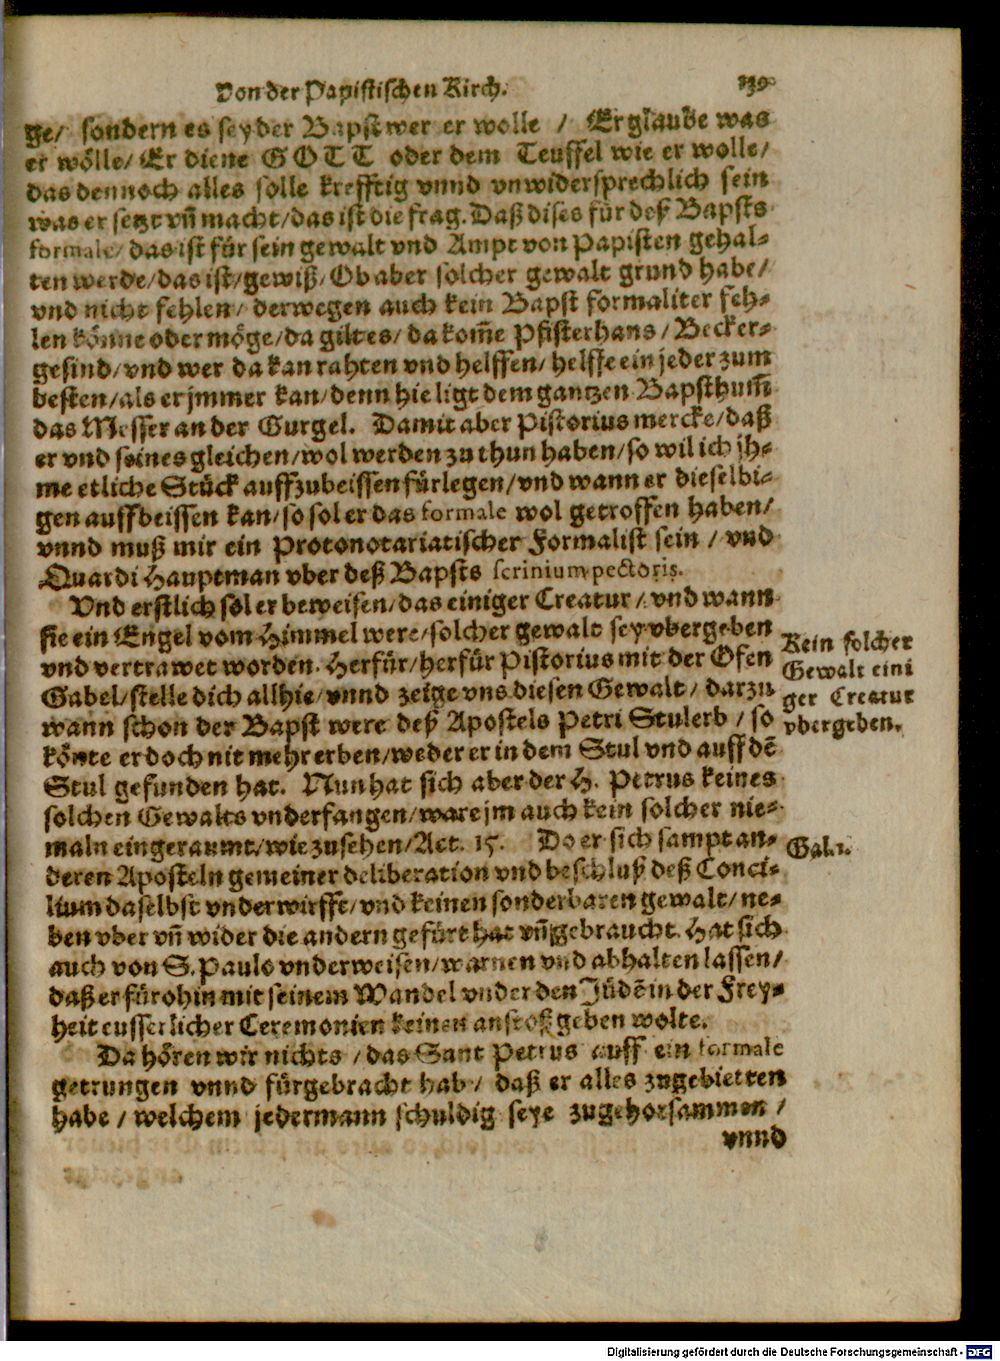 Von der Papistischen Kirch. 139
ge/ sondern es sey der Bapst wer er wolle / Er glaube was
er wölle/ Er diene GOTT oder dem Teuffel wie er wolle/
das dennoch alles solle krefftig vnnd vnwidersprechlich sein
was er setzt vñ macht/das ist die frag. Daß dises für deß Bapsts
formale/ das ist für sein gewalt vnd Ampt von Papisten gehal-
ten werde/das ist/gewiß/ Ob aber solcher gewalt grund habe/
vnd nicht fehlen/ derwegen auch kein Bapst formaliter feh-
len könne oder möge/da gilt es/ da kom̃e Pfisterhans/ Becker-
gesind/vnd wer da kan rahten vnd helffen/ helffe ein jeder zum
besten/als er jmmer kan/denn hie ligt dem gantzen Bapsthum̃
das Messer an der Gurgel. Damit aber Pistorius mercke/daß
er vnd seines gleichen/wol werden zu thun haben/so wil ich jh-
me etliche Stück auffzubeissen fürlegen/vnd wann er dieselbi-
gen auffbeissen kan/so sol er das formale wol getroffen haben/
vnnd muß mir ein Protonotariatischer Formalist sein / vnd
Quardi Hauptman vber deß Bapsts scrinium pectoris.
Vnd erstlich sol er beweisen/das einiger Creatur/ vnd wann
sie ein Engel vom Himmel were/solcher gewalt sey vbergeben
vnd vertrawet worden. Herfür/herfür Pistorius mit der Ofen
Gabel/stelle dich allhie/vnnd zeige vns diesen Gewalt/ darzu
wann schon der Bapst were deß Apostels Petri Stulerb / so
könte er doch nit mehr erben/weder er in dem Stul vnd auff dẽ
Stul gefunden hat. Nun hat sich aber der H. Petrus keines
solchen Gewalts vnderfangen/ware jm auch kein solcher nie-
maln eingeraumt/wie zusehen/Act. 15. Do er sich sampt an-
deren Aposteln gemeiner deliberation vnd beschluß deß Conci-
lium daselbst vnderwirfft/vnd keinen sonderbaren gewalt/ ne-
ben vber vñ wider die andern gefürt hat vñ gebraucht. Hat sich
auch von S. Paulo vnderweisen/warnen vnd abhalten lassen/
daß er fürohin mit seinem Wandel vnder den Jüdẽ in der Frey-
heit eusserlicher Ceremonien keinen anstoß geben wolte.
Da hören wir nichts / das Sant Petrus auff ein formale
getrungen vnnd fürgebracht hab/ daß er alles zugebietten
habe / welchem jedermann schuldig seye zugehorsammen /
vnnd
Kein solcher
Gewalt eini
ger Creatur
vbergeben.
Gal.2.
Digitalisierung gefördert durch die Deutsche Forschungsgemeinschaft - DFG